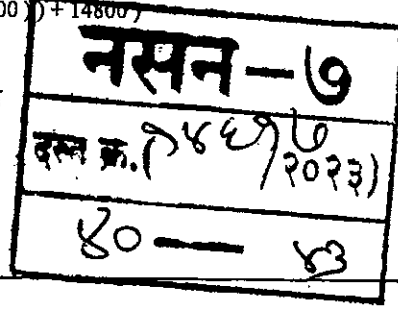 00 )) + 14800 )
नसन - ७
दस्त क्र. (१४६१७
२०२३)
४० — ४३